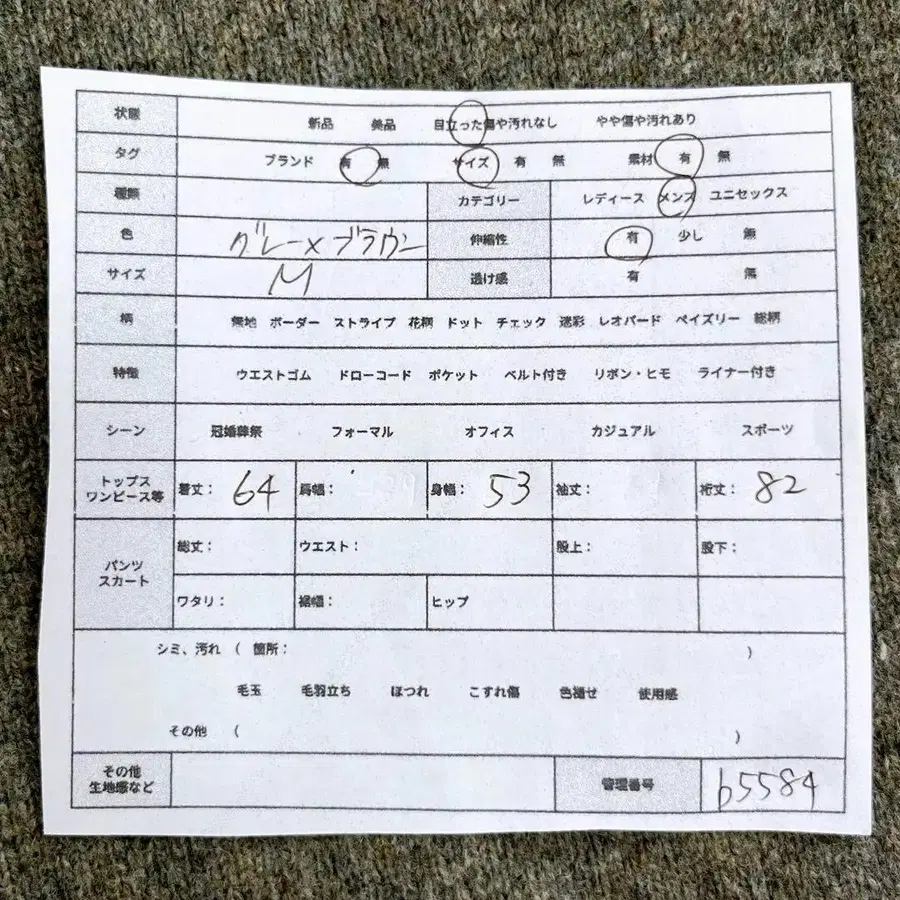 状態 新品 美品 目立った傷や汚れなし やや傷や汚れあり
タグ ブランド 有 無 サイズ 有 無 素材 有 無
種類 カテゴリー レディース メンズ ユニセックス
色 グレー×ブラウン 伸縮性 有 少し 無
サイズ M 透け感 有 無
柄 無地 ボーダー ストライプ 花柄 ドット チェック 迷彩 レオパード ペイズリー 総柄
特徴 ウエストゴム ドローコード ポケット ベルト付き リボン・ヒモ ライナー付き
シーン 冠婚葬祭 フォーマル オフィス カジュアル スポーツ
トップス
ワンピース等 着丈： 64 肩幅： 身幅： 53 袖丈： 裄丈： 82
パンツ
スカート
総丈： ウエスト： 股上： 股下：
ワタリ： 裾幅： ヒップ
シミ、汚れ （ 箇所： ）
毛玉 毛羽立ち ほつれ こすれ傷 色褪せ 使用感
その他 （ ）
その他
生地感など 管理番号 b5584